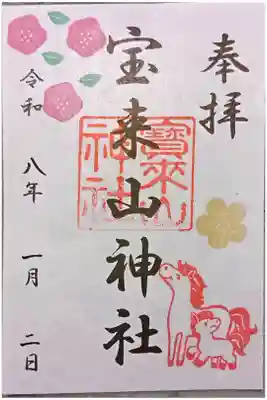 奉拝
宝来山神社
寶來山
神社
令和八年一月二日